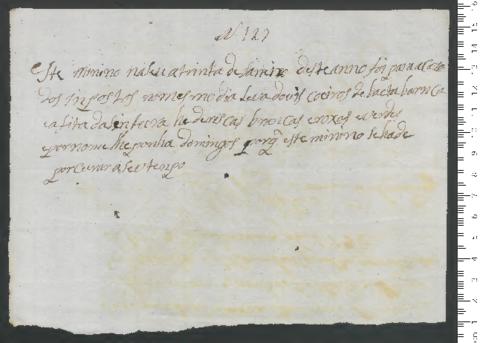 Nº 127
Este minino naseu a trinta de Janeiro deste anno foi para a Caza
dos Inpostos no mesmo dia leva dous coeiros de baeta
a fita da sintura he de riscas brancas e roxas e verdes
e por nome lhe ponha domingos porq este minino se ha de
porcurar a seu tenpo